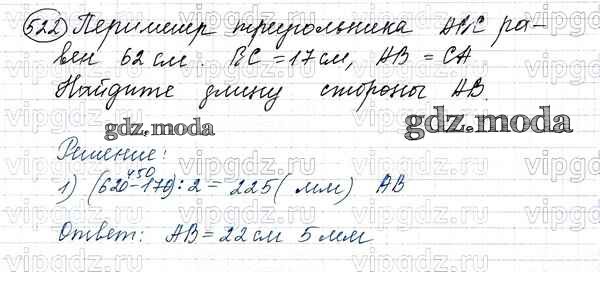 522 Периметр треугольника ABC ра-
вен 62 см. BC = 17 см, AB = CA
Найдите длину стороны AB.
gdz.moda
gdz.moda
Решение:
450
1) (620-170):2 = 225 (мм) AB
Ответ: AB = 22 см 5 мм
vipgdz.ru